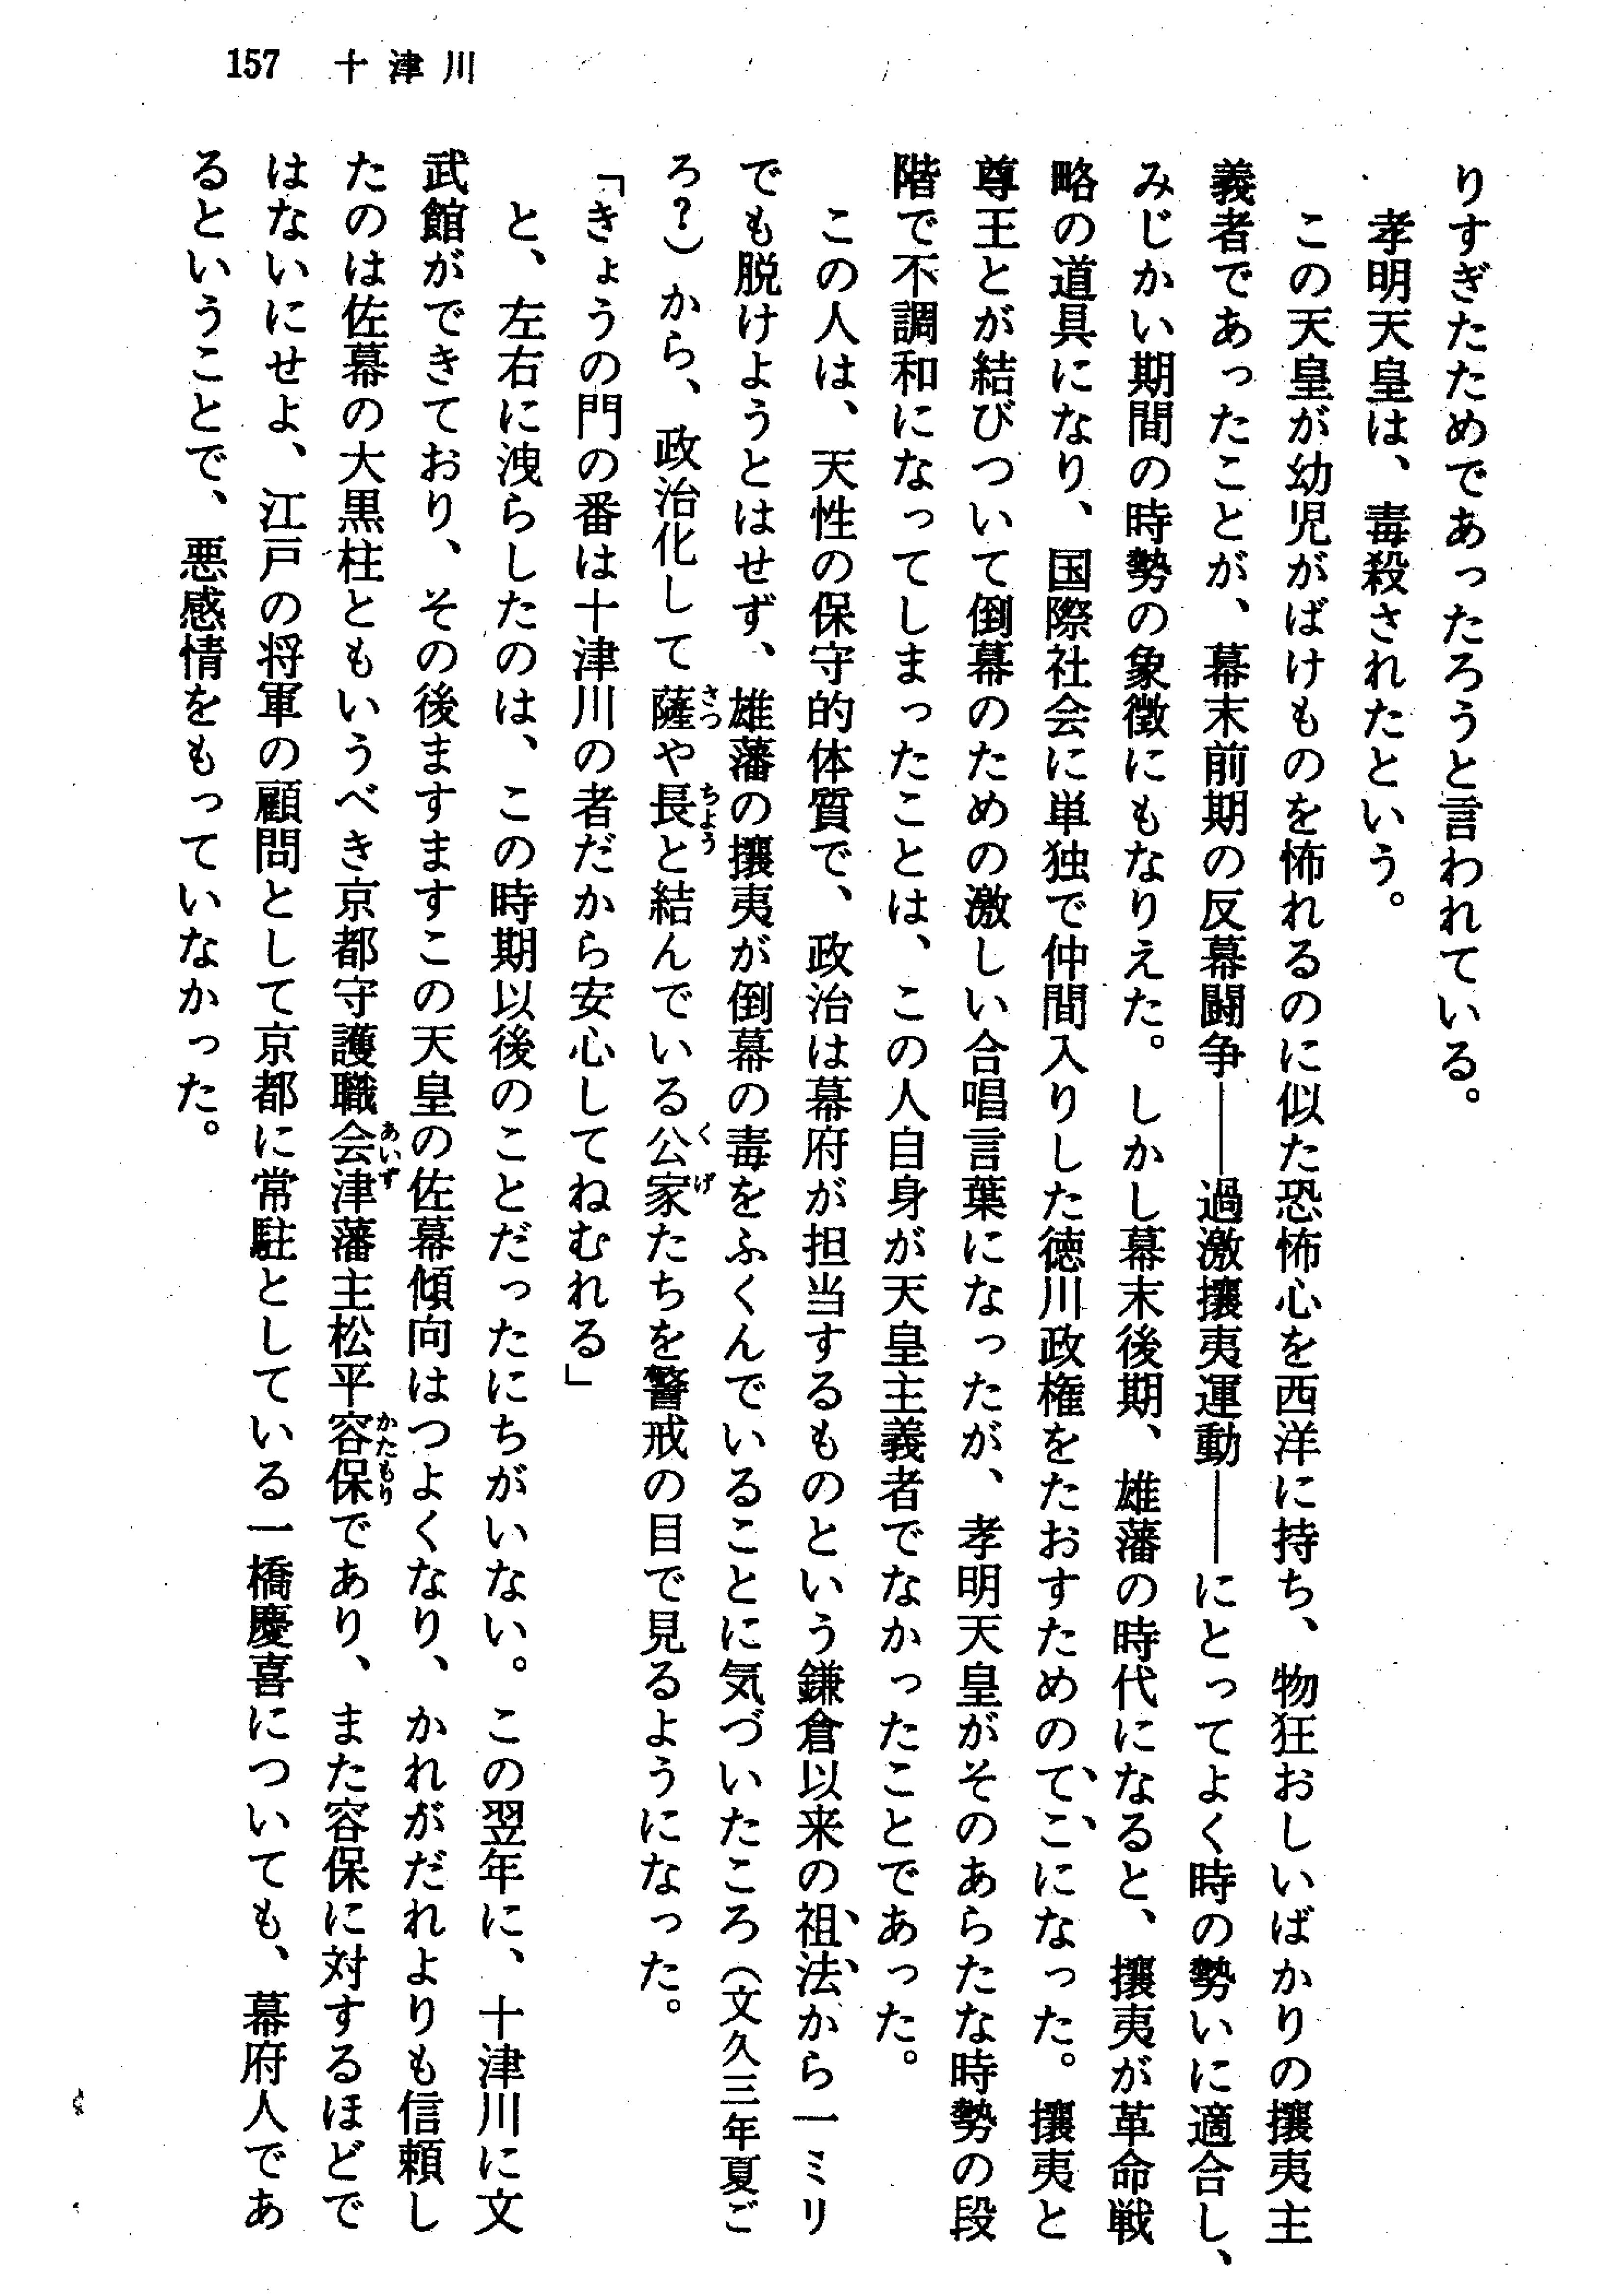 157 十津川
りすぎたためであったろうと言われている。
孝明天皇は、毒殺されたという。
この天皇が幼児がばけものを怖れるのに似た恐怖心を西洋に持ち、物狂おしいばかりの攘夷主
義者であったことが、幕末前期の反幕闘争――過激攘夷運動――にとってよく時の勢いに適合し、
みじかい期間の時勢の象徴にもなりえた。しかし幕末後期、雄藩の時代になると、攘夷が革命戦
略の道具になり、国際社会に単独で仲間入りした徳川政権をたおすためのてこになった。攘夷と
尊王とが結びついて倒幕のための激しい合唱言葉になったが、孝明天皇がそのあらたな時勢の段
階で不調和になってしまったことは、この人自身が天皇主義者でなかったことであった。
この人は、天性の保守的体質で、政治は幕府が担当するものという鎌倉以来の祖法から一ミリ
でも脱けようとはせず、雄藩の攘夷が倒幕の毒をふくんでいることに気づいたころ（文久三年夏ご
ろ？）から、政治化して薩や長と結んでいる公家たちを警戒の目で見るようになった。
「きょうの門の番は十津川の者だから安心してねむれる」
と、左右に洩らしたのは、この時期以後のことだったにちがいない。この翌年に、十津川に文
武館ができており、その後ますますこの天皇の佐幕傾向はつよくなり、かれがだれよりも信頼し
たのは佐幕の大黒柱ともいうべき京都守護職会津藩主松平容保であり、また容保に対するほどで
はないにせよ、江戸の将軍の顧問として京都に常駐としている一橋慶喜についても、幕府人であ
るということで、悪感情をもっていなかった。